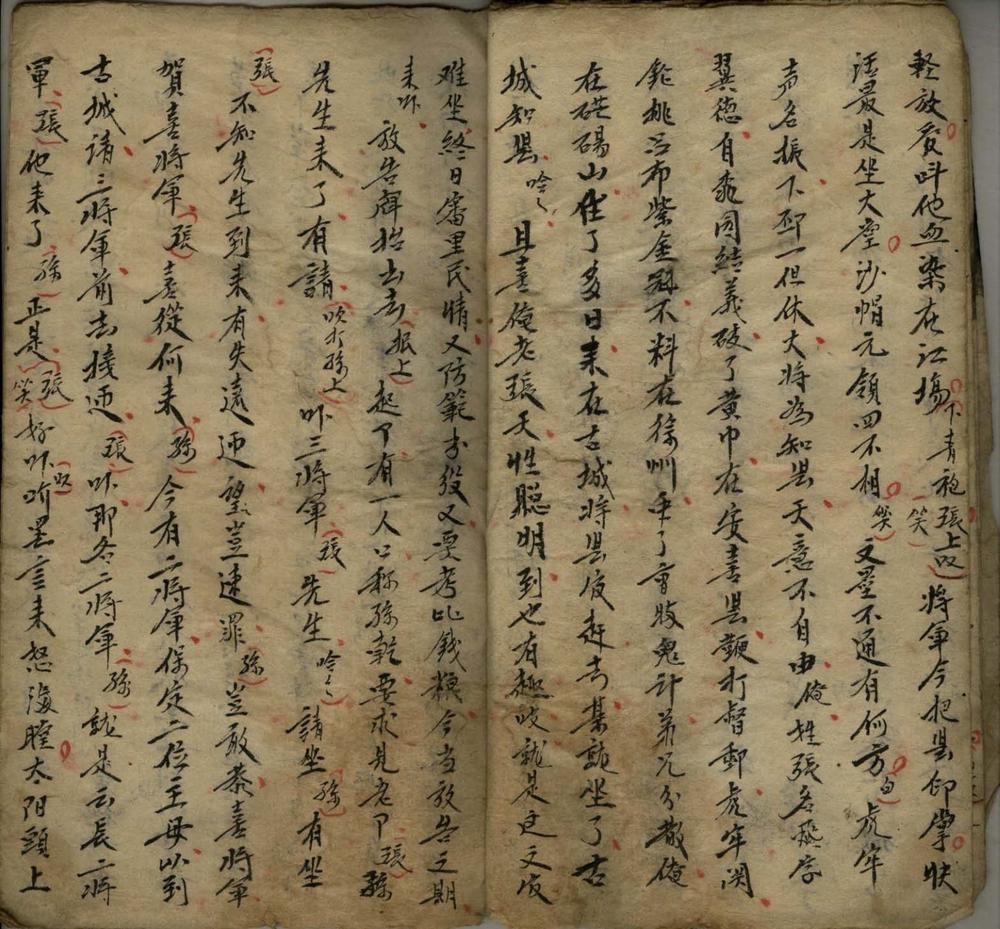 輕放屋叫他血染在江塲下青袍張上以笑將軍今把县印掌快
活最是坐大堂沙帽元領四不相笑文墨不通有何方白虎牢
声名振下邳一但休大將為知县天意不自由俺姓張名飛字
翼德自桃园結義破了黃巾在安喜县鞭打督郵虎牢関
鎗挑吕布紫金冠不料在徐州中了曹賊鬼計弟兄分散俺
在硭碭山住了多日来在古城將县官赶去某就坐了古
城知县哈〻且喜俺老張天性聪明到也有趣吱就是这文官
难坐終日審里民情又防範書役又要考比錢粮今当放告之期
来吓放告牌抬出去报上起爷有一人口称孫乾要求見老爷張孫
先生来了有請吹打孫上吓三將軍張先生哈〻請坐孫有坐
張不知先生到来有失遠迎望豈速罪孫豈敢恭喜將軍
賀喜將軍張喜從何来孫今有二將軍保定二位主母以到
古城請三將軍前去接迎張吓那个二將軍孫就是云長二將
軍張他来了孫正是張笑好吓以听罢言来怒滿膛太阳頭上